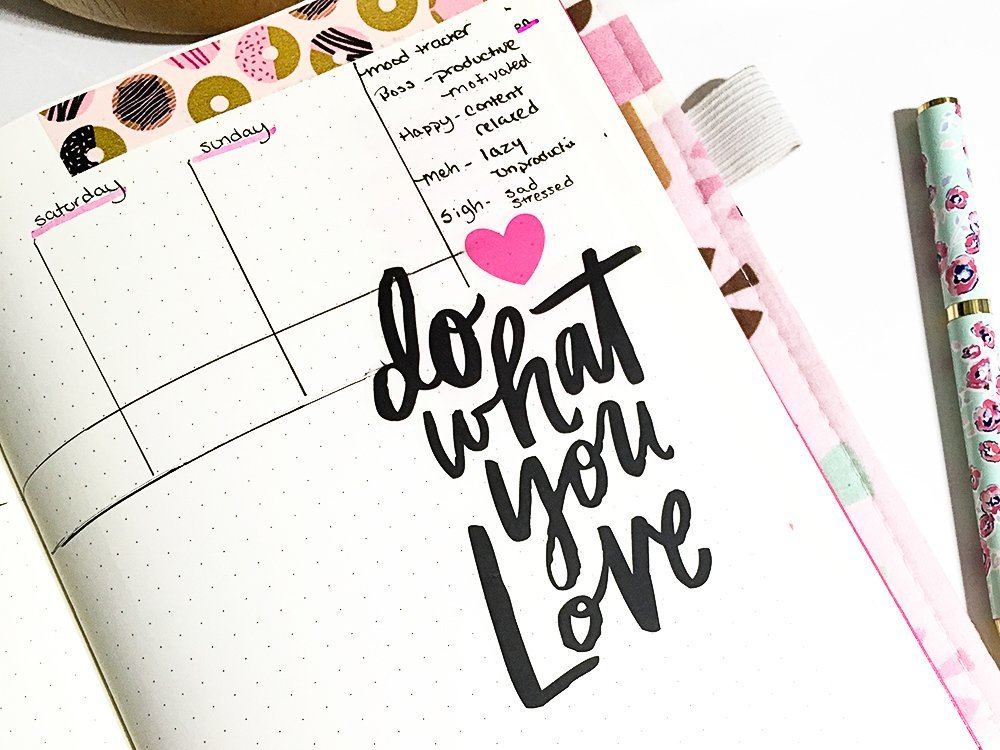 saturday
sunday
mood tracker
Boss - productive
- motivated
Happy - content
relaxed
meh - lazy
unproducti
sigh - sad
stressed
do
what
you
Love